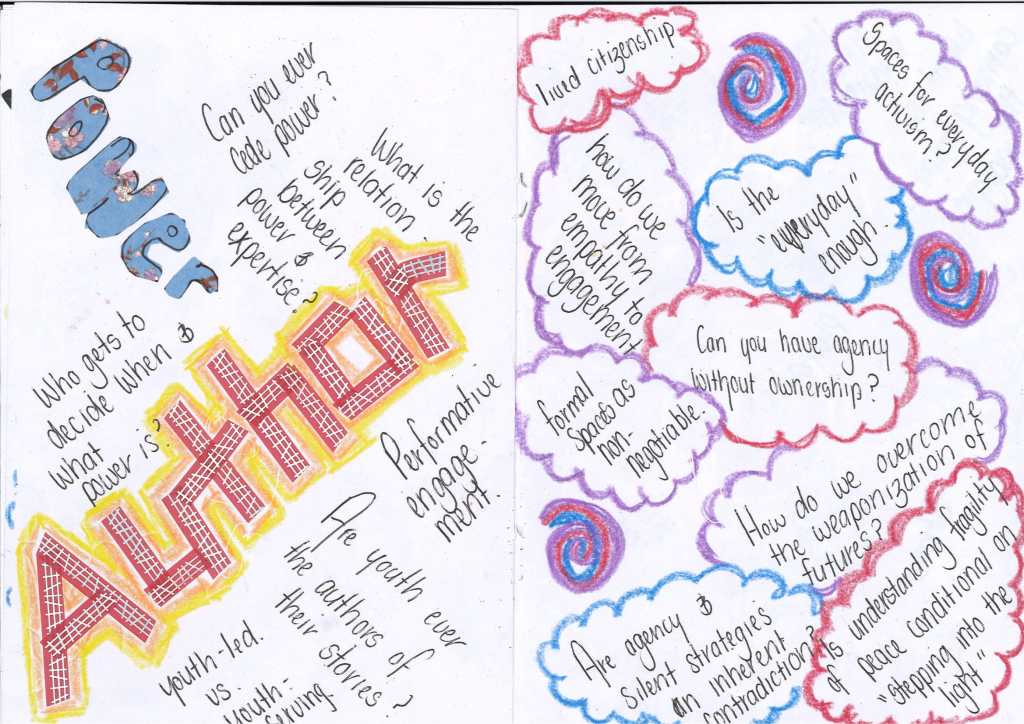 Power
Can you ever
cede power?
What is the
relation
ship
between
power &
expertise?
Who gets to
decide when &
what
power is?
Author
Performative
engage-
ment.
Are youth ever
the authors of
their stories?
youth-led.
vs.
youth-
serving
lived citizenship
Spaces for everyday
activism?
how do we
move from
empathy to
engagement
Is the
"everyday"
enough.
Can you have agency
without ownership?
formal
spaces as
non-
negotiable.
How do we overcome
the weaponization of
futures?
Are agency &
silent strategies
an inherent
contradiction?
is understanding fragility
of peace conditional on
"stepping into the
light"